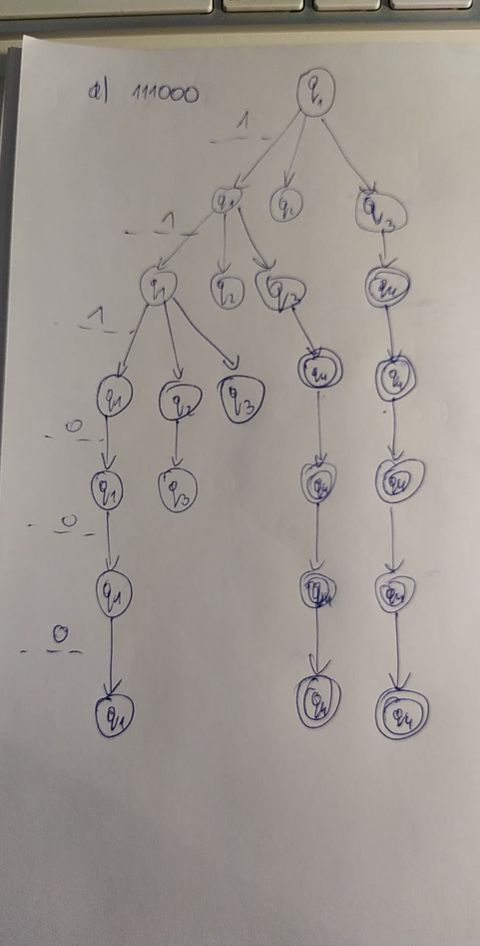 a) 111000
q1
1
q1 q2 q3
1
q1 q2 q3 q4
1
q1 q2 q3 q4 q4
0
q1 q3 q4 q4
0
q1 q4 q4
0
q1 q4 q4